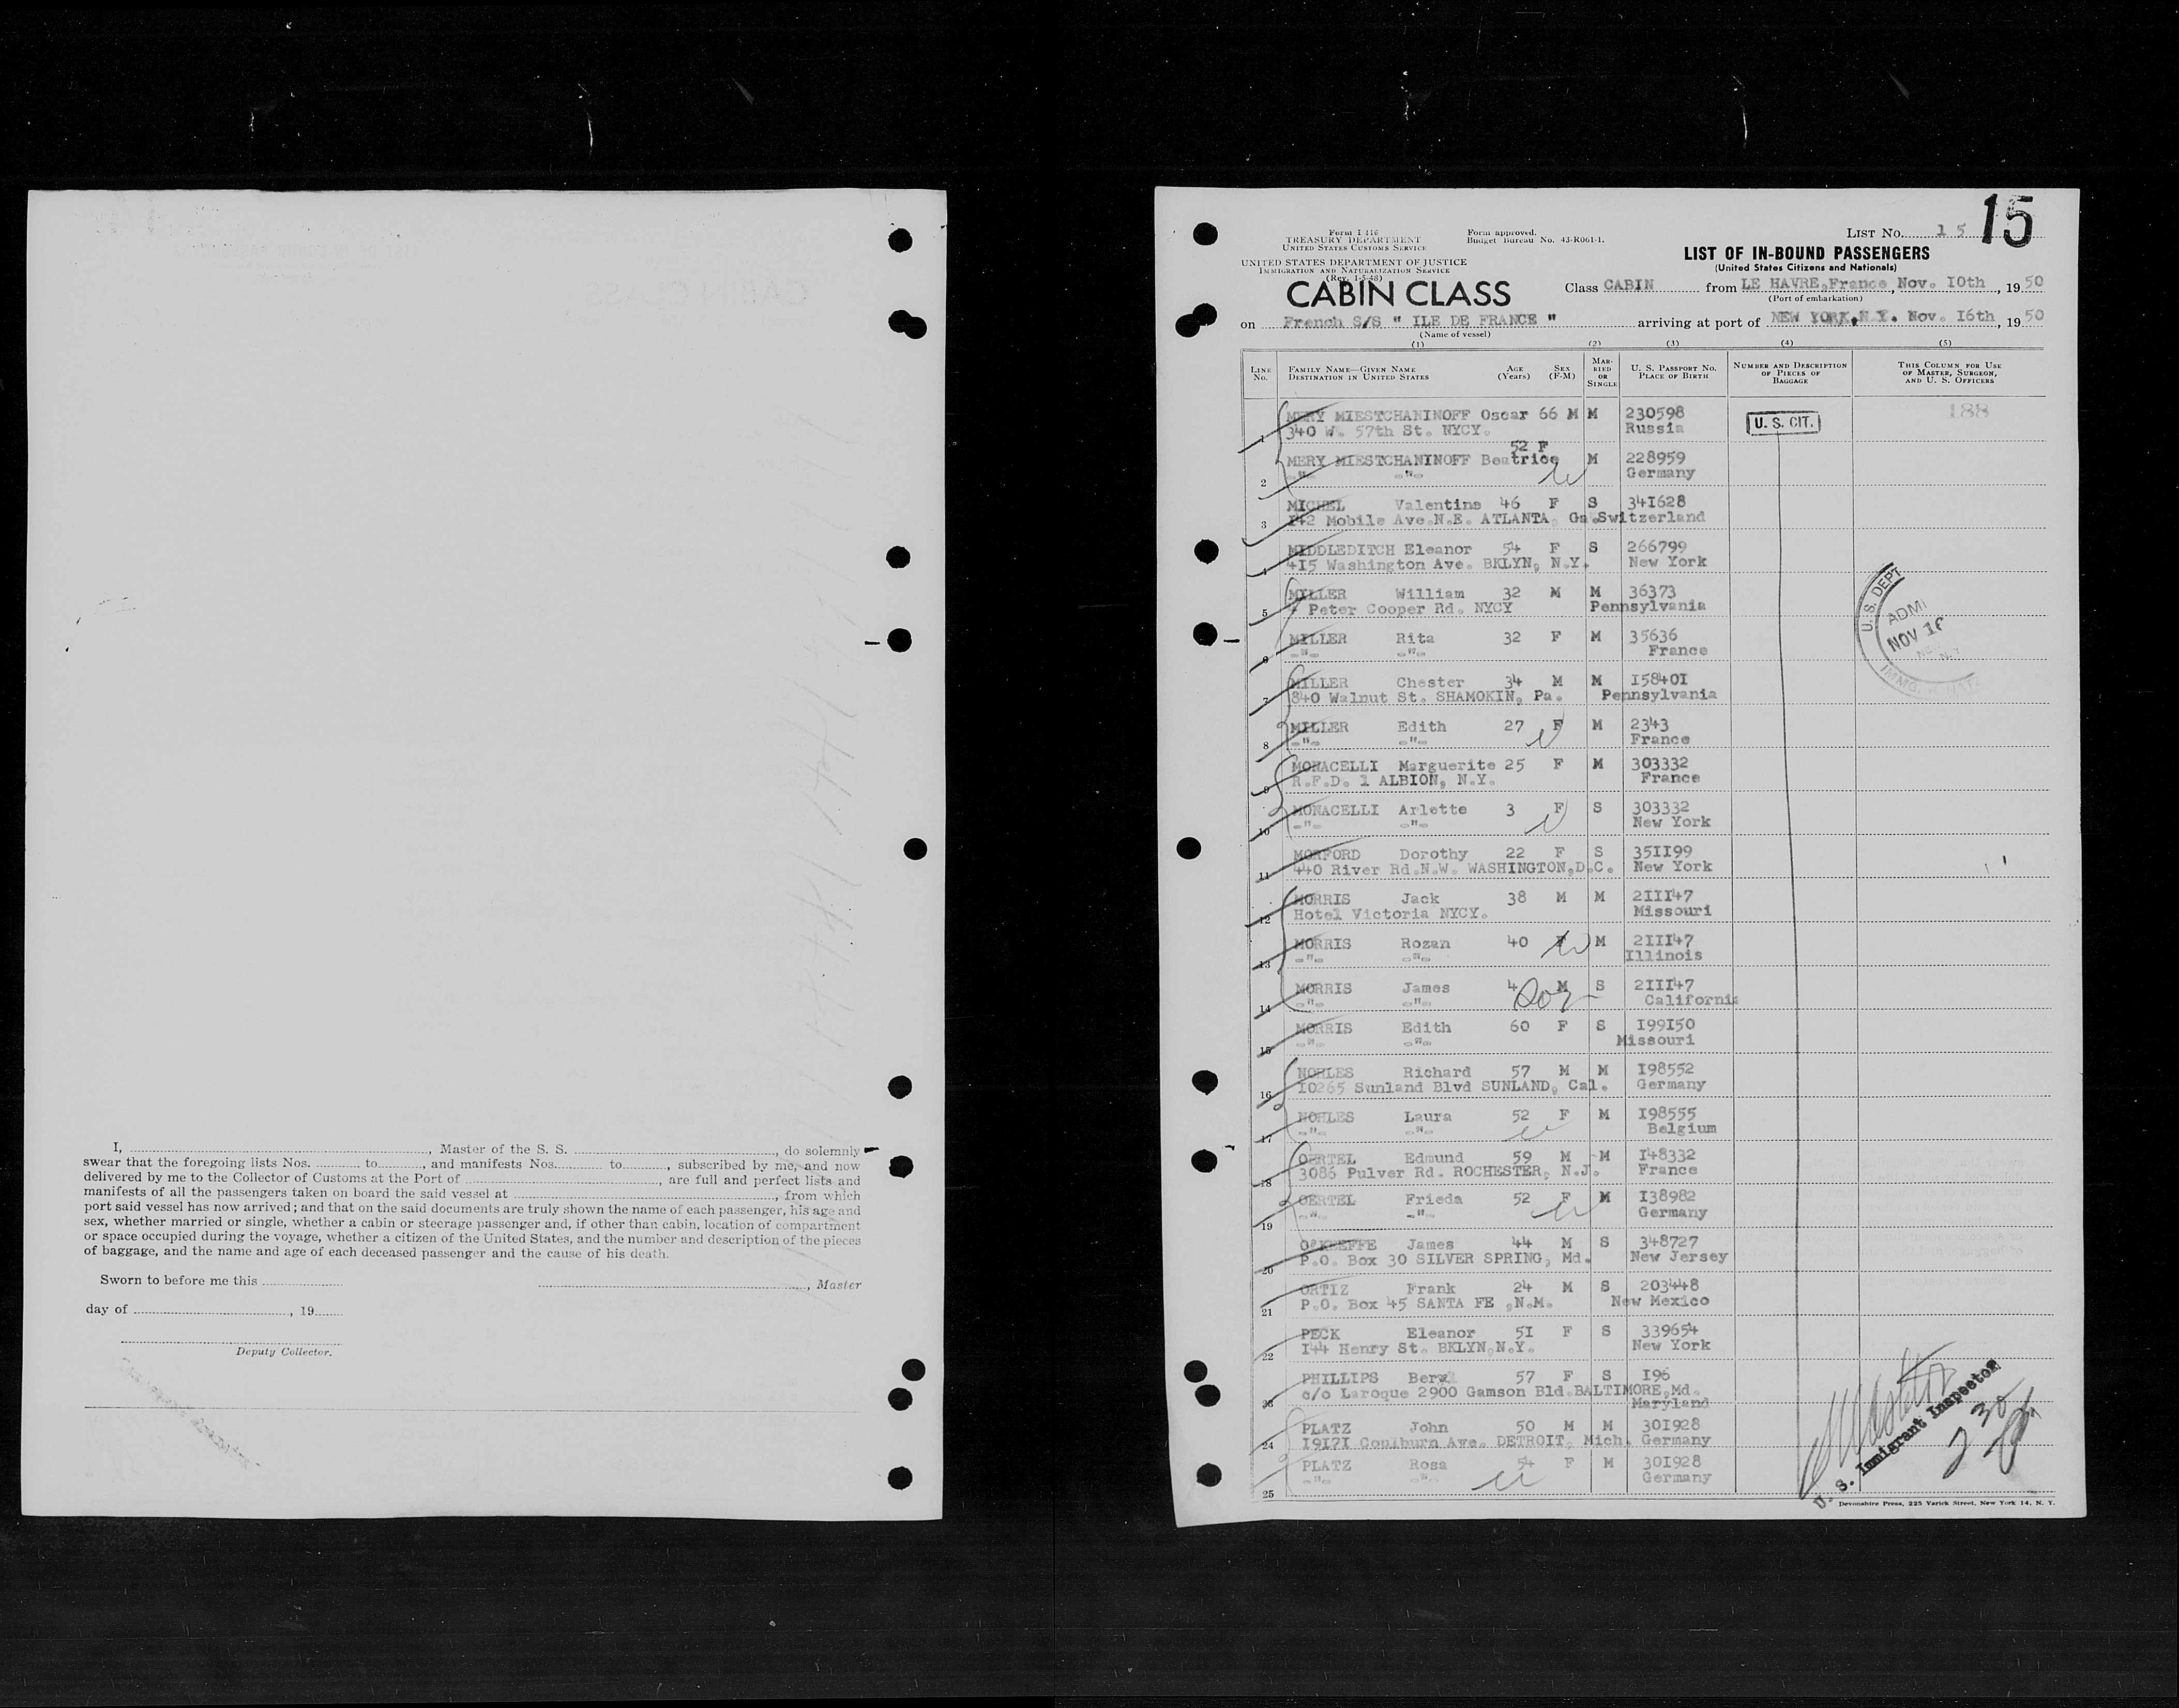 I, ........, Master of the S. S. ........, do solemnly
swear that the foregoing lists Nos. ........ to ........, and manifests Nos. ........ to ........, subscribed by me, and now
delivered by me to the Collector of Customs at the Port of ........, are full and perfect lists and
manifests of all the passengers taken on board the said vessel at ........, from which
port said vessel has now arrived; and that on the said documents are truly shown the name of each passenger, his age and
sex, whether married or single, whether a cabin or steerage passenger and, if other than cabin, location of compartment
or space occupied during the voyage, whether a citizen of the United States, and the number and description of the pieces
of baggage, and the name and age of each deceased passenger and the cause of his death.
Sworn to before me this ........
........, Master
day of ........, 19......
Deputy Collector.
Form I 416
TREASURY DEPARTMENT
UNITED STATES CUSTOMS SERVICE
Form approved.
Budget Bureau No. 43-R061-1.
LIST No. 15
15
UNITED STATES DEPARTMENT OF JUSTICE
IMMIGRATION AND NATURALIZATION SERVICE
(Rev. 1-5-48)
LIST OF IN-BOUND PASSENGERS
(United States Citizens and Nationals)
CABIN CLASS
Class CABIN from LE HAVRE,France, Nov. 10th, 1950
(Port of embarkation)
on French S/S " ILE DE FRANCE " arriving at port of NEW YORK,N.Y. Nov. 16th, 1950
(Name of vessel)
(1) (2) (3) (4) (5)
LINE No. FAMILY NAME—GIVEN NAME DESTINATION IN UNITED STATES AGE (Years) SEX (F-M) MARRIED OR SINGLE U. S. PASSPORT No. PLACE OF BIRTH NUMBER AND DESCRIPTION OF PIECES OF BAGGAGE THIS COLUMN FOR USE OF MASTER, SURGEON, AND U. S. OFFICERS
MERY MIESTCHANINOFF Oscar 66 M M 230598 188
1 340 W. 57th St. NYCY. Russia U. S. CIT.
52 F
MERY MIESTCHANINOFF Beatrice M 228959
2 -"- -"- Germany
MICHEL Valentine 46 F S 341628
3 142 Mobile Ave.N.E. ATLANTA, Ga. Switzerland
MIDDLEDITCH Eleanor 54 F S 266799
4 415 Washington Ave. BKLYN, N.Y. New York
MILLER William 32 M M 36373
5 Peter Cooper Rd. NYCY Pennsylvania
MILLER Rita 32 F M 35636
6 -"- -"- France
U. S. DEPT
ADMI
NOV 16
IMMG. & NAT
MILLER Chester 34 M M 158401
7 840 Walnut St. SHAMOKIN, Pa. Pennsylvania
MILLER Edith 27 F M 2343
8 -"- -"- France
MONACELLI Marguerite 25 F M 303332
9 R.F.D. 1 ALBION, N.Y. France
MONACELLI Arlette 3 F S 303332
10 -"- -"- New York
MORFORD Dorothy 22 F S 351199
11 440 River Rd.N.W. WASHINGTON,D.C. New York
MORRIS Jack 38 M M 211147
12 Hotel Victoria NYCY. Missouri
MORRIS Rozan 40 F M 211147
13 -"- -"- Illinois
MORRIS James 4 M S 211147
14 -"- -"- California
MORRIS Edith 60 F S 199150
15 -"- -"- Missouri
NOHLES Richard 57 M M 198552
16 10265 Sunland Blvd SUNLAND, Cal. Germany
NOHLES Laura 52 F M 198555
17 -"- -"- Belgium
OERTEL Edmund 59 M M 148332
18 3086 Pulver Rd. ROCHESTER, N.J. France
OERTEL Frieda 52 F M 138982
19 -"- -"- Germany
O'KEEFFE James 44 M S 348727
20 P.O. Box 30 SILVER SPRING, Md. New Jersey
ORTIZ Frank 24 M S 203448
21 P.O. Box 45 SANTA FE ,N.M. New Mexico
PECK Eleanor 51 F S 339654
22 144 Henry St. BKLYN,N.Y. New York
PHILLIPS 57 F S 196
c/o Laroque 2900 Gamson Bld.BALTIMORE,Md.
23 Maryland
PLATZ John 50 M M 301928
24 19171 Coulburn Ave. DETROIT, Mich. Germany
PLATZ Rosa 54 F M 301928
25 -"- -"- Germany
U. S. Immigrant Inspector
Devonshire Press, 225 Varick Street, New York 14, N. Y.